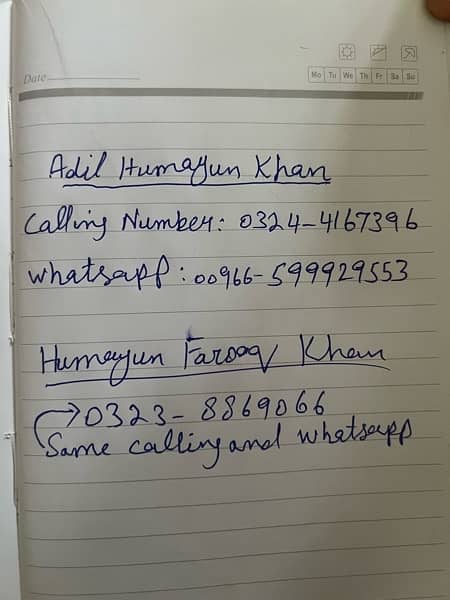 Date
Mo Tu We Th Fr Sa Su
Adil Humayun Khan
Calling Number: 0324-4167396
whatsapp: 00966-599929553
Humayun Farooq Khan
→0323-8869066
Same calling and whatsapp